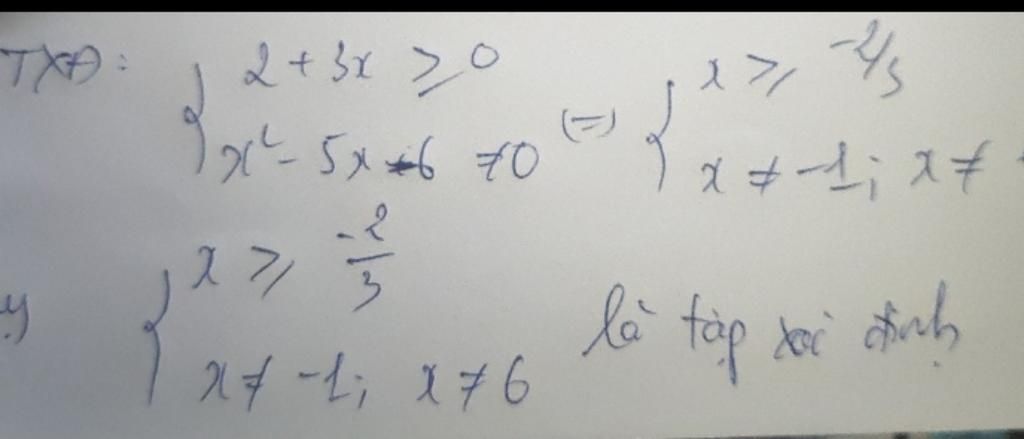 TXĐ: { 2 + 3x ≥ 0 (=) { x ≥ -2/3
x² - 5x - 6 ≠ 0 x ≠ -1; x ≠
y { x ≥ -2/3
x ≠ -1; x ≠ 6 là tập xác định